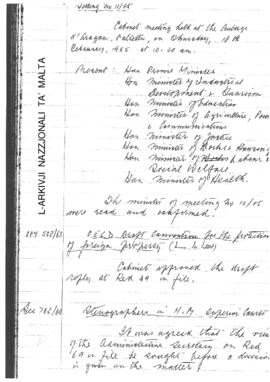 Meeting No 11/65
Cabinet meeting held at the Auberge
d'Aragon, Valletta, on Thursday, 18th
February, 1965 at 10.20 am.
Present : Hon Prime Minister
Hon Minister of Industrial
Development & Tourism
Hon Minister of Education
Hon Minister of Agriculture, Power
& Communications
Hon Minister of Justice
Hon Minister of Works & Housing
Hon Minister of Labour &
Social Welfare
Hon Minister of Health.
The minutes of meeting No 10/65
were read and confirmed.
O.E.C.D. Draft Convention for the protection
of foreign property
Cabinet approved the draft
reply at Red 29 in file.
Stenographers in H.M. Superior Courts
It was agreed that the views
of the Administrative Secretary on Red
69 in file be sought before a decision
is given on the matter.
L-ARKIVJI NAZZJONALI TA' MALTA